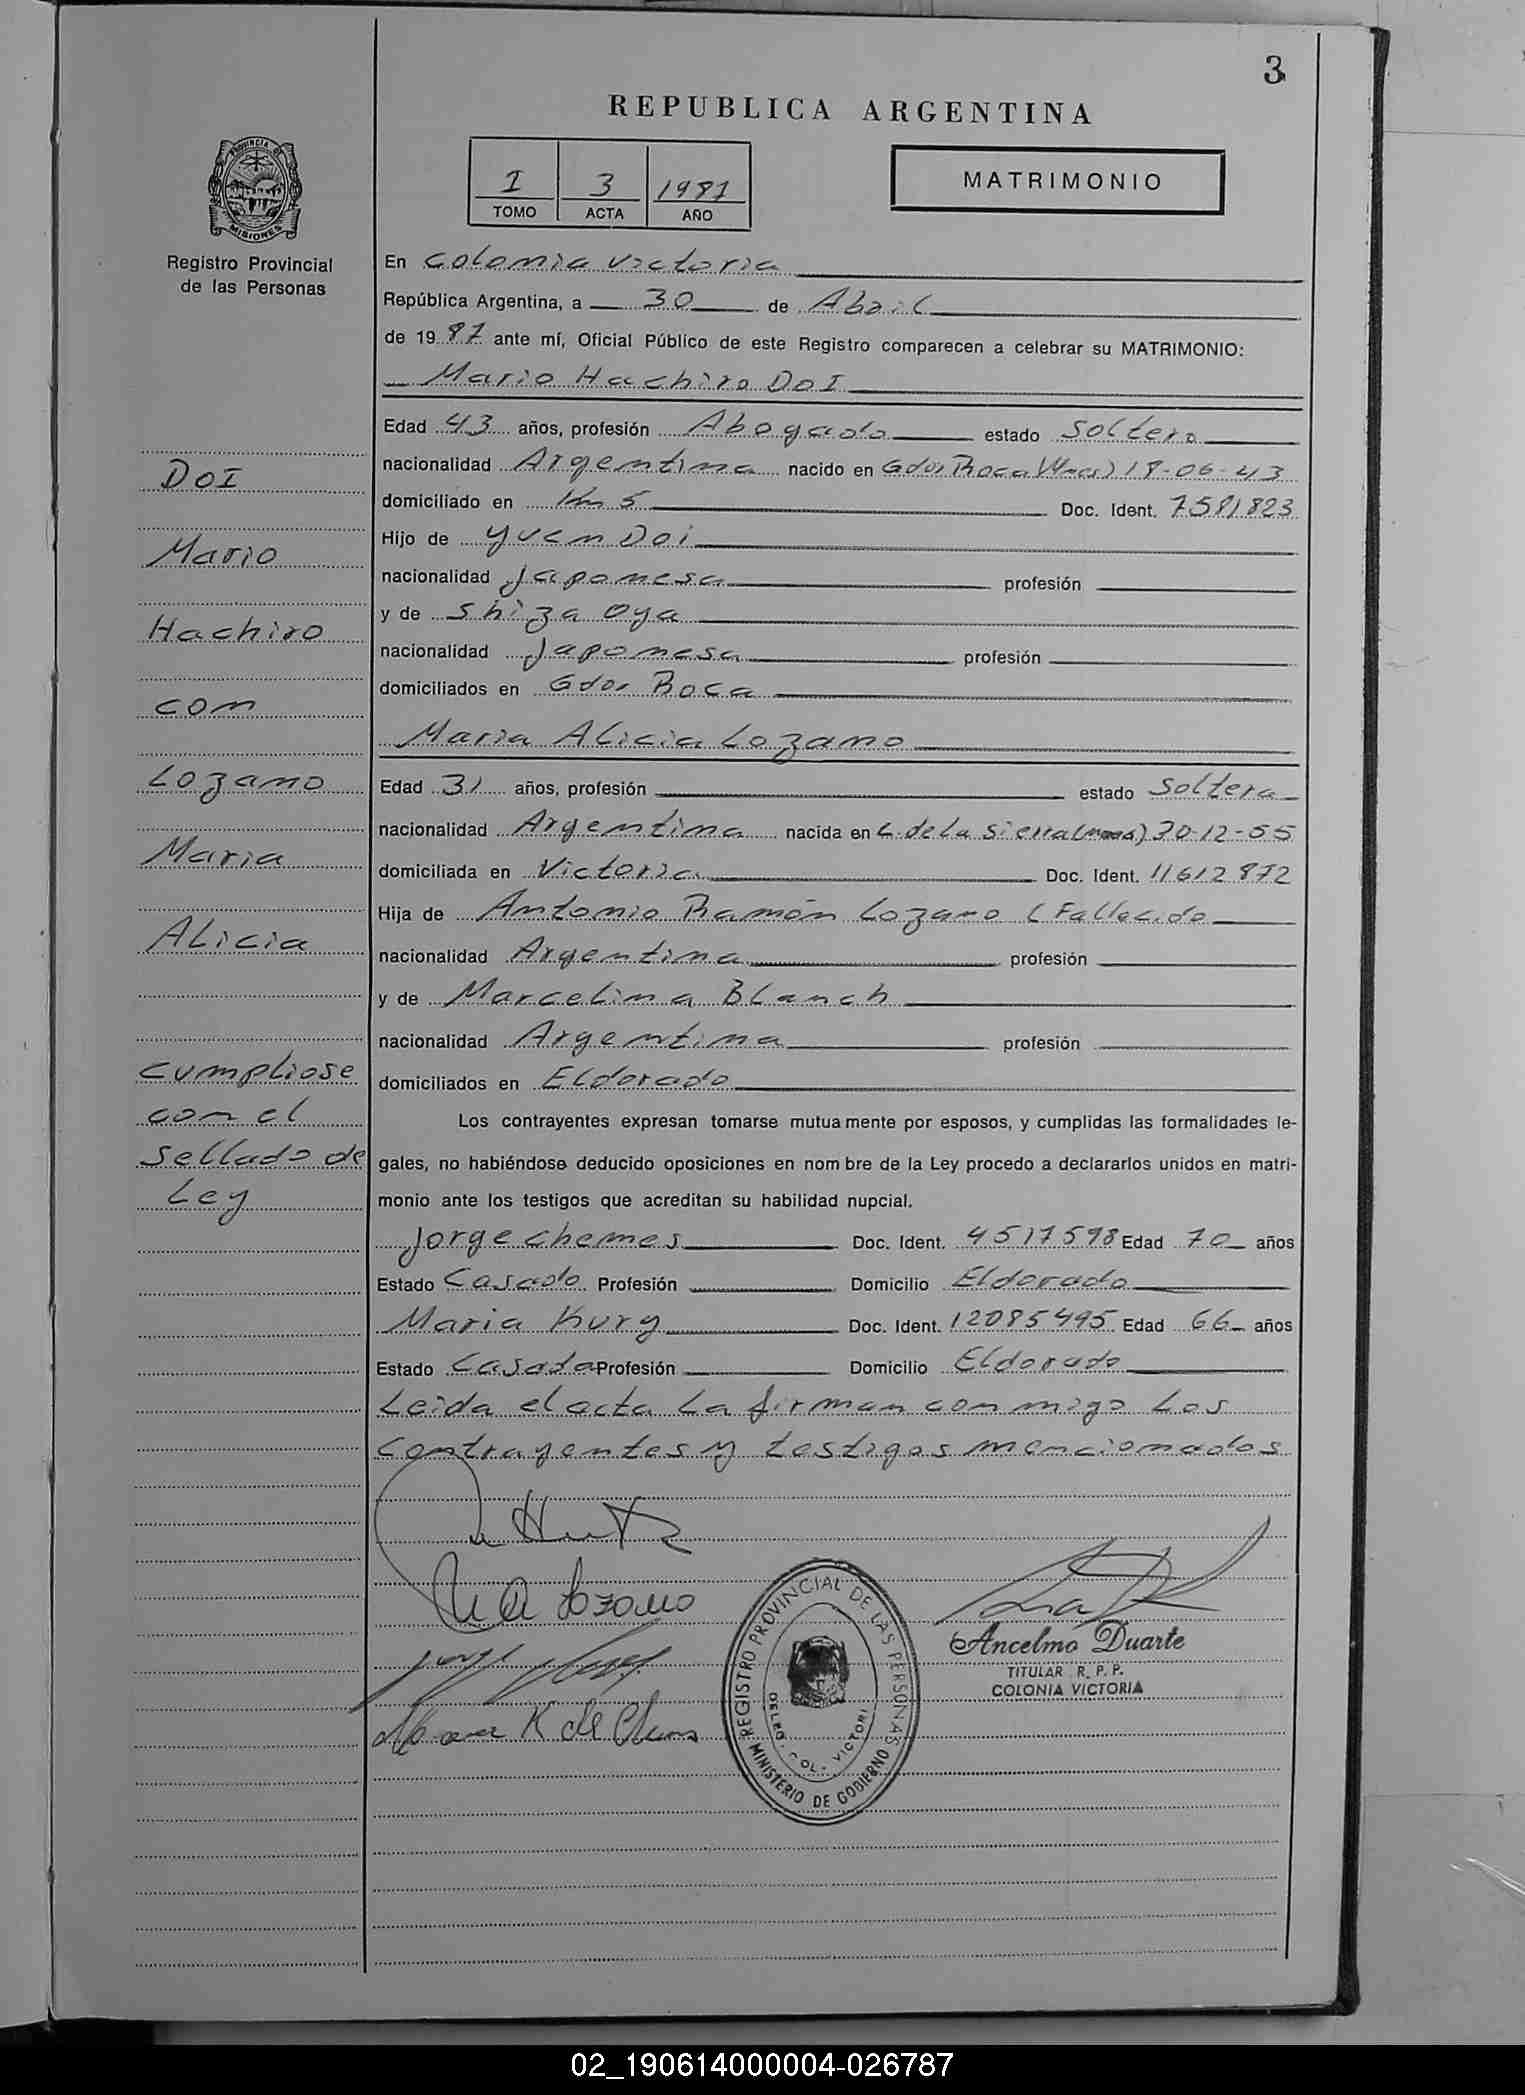 3
REPUBLICA ARGENTINA
I 3 1987
TOMO ACTA AÑO
MATRIMONIO
PROVINCIA DE MISIONES
Registro Provincial
de las Personas
En Colonia Victoria
República Argentina, a 30 de Abril
de 1987 ante mí, Oficial Público de este Registro comparecen a celebrar su MATRIMONIO:
Mario Hachiro DoI
Edad 43 años, profesión Abogado estado Soltero
nacionalidad Argentina nacido en Gdor Roca (Mnes) 18-06-43
domiciliado en Km 5 Doc. Ident. 7581823
Hijo de Yuen Doi
nacionalidad Japonesa profesión
y de Shiza Oya
nacionalidad Japonesa profesión
domiciliados en Gdor Roca
Maria Alicia Lozano
Edad 31 años, profesión estado Soltera
nacionalidad Argentina nacida en C. de la Sierra (mnes) 30-12-55
domiciliada en Victoria Doc. Ident. 11612872
Hija de Antonio Ramón Lozano (Fallecido
nacionalidad Argentina profesión
y de Marcelina Blanch
nacionalidad Argentina profesión
domiciliados en Eldorado
Los contrayentes expresan tomarse mutuamente por esposos, y cumplidas las formalidades le-
gales, no habiéndose deducido oposiciones en nombre de la Ley procedo a declararlos unidos en matri-
monio ante los testigos que acreditan su habilidad nupcial.
Jorge Chemes Doc. Ident. 4517598 Edad 70 años
Estado Casado Profesión Domicilio Eldorado
Maria Kury Doc. Ident. 12085495 Edad 66 años
Estado Casada Profesión Domicilio Eldorado
Leida el acta la firman conmigo los
contrayentes y testigos mencionados
DoI
Mario
Hachiro
con
Lozano
Maria
Alicia
Cumpliose
con el
Sellado de
Ley
Lozano
K de Chemes
REGISTRO PROVINCIAL DE LAS PERSONAS
MINISTERIO DE GOBIERNO
DELEG. COL. VICTORI
Ancelmo Duarte
TITULAR R. P. P.
COLONIA VICTORIA
02_190614000004-026787